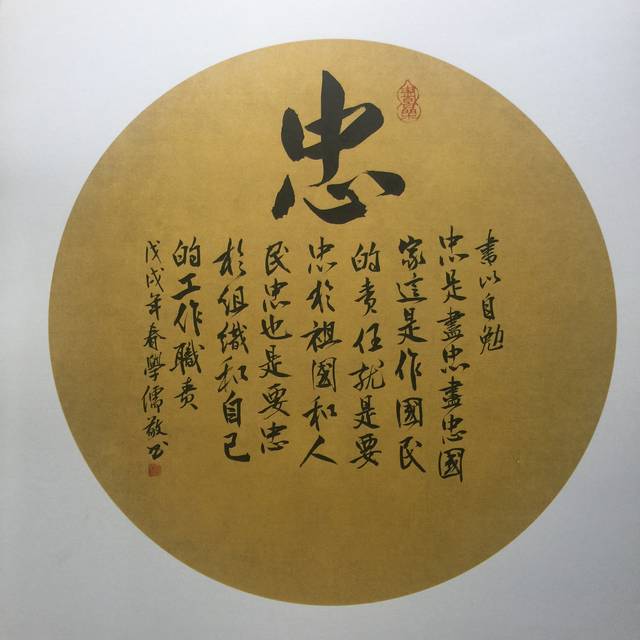 忠
書以自勉
忠是盡忠盡忠國
家這是作國民
的責任就是要
忠於祖國和人
民忠也是要忠
於組織和自己
的工作職责
戊戌年春學儒敬书